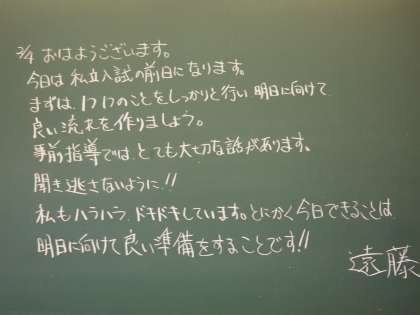 2/4 おはようございます。
今日は 私立入試の前日になります。
まずは、1つ1つのことをしっかりと行い 明日に向けて
良い流れを作りましょう。
事前指導では、とても大切な話があります。
聞き逃さないように!!
私もハラハラ ドキドキしています。とにかく今日できることは
明日に向けて良い準備をすることです!!
遠藤